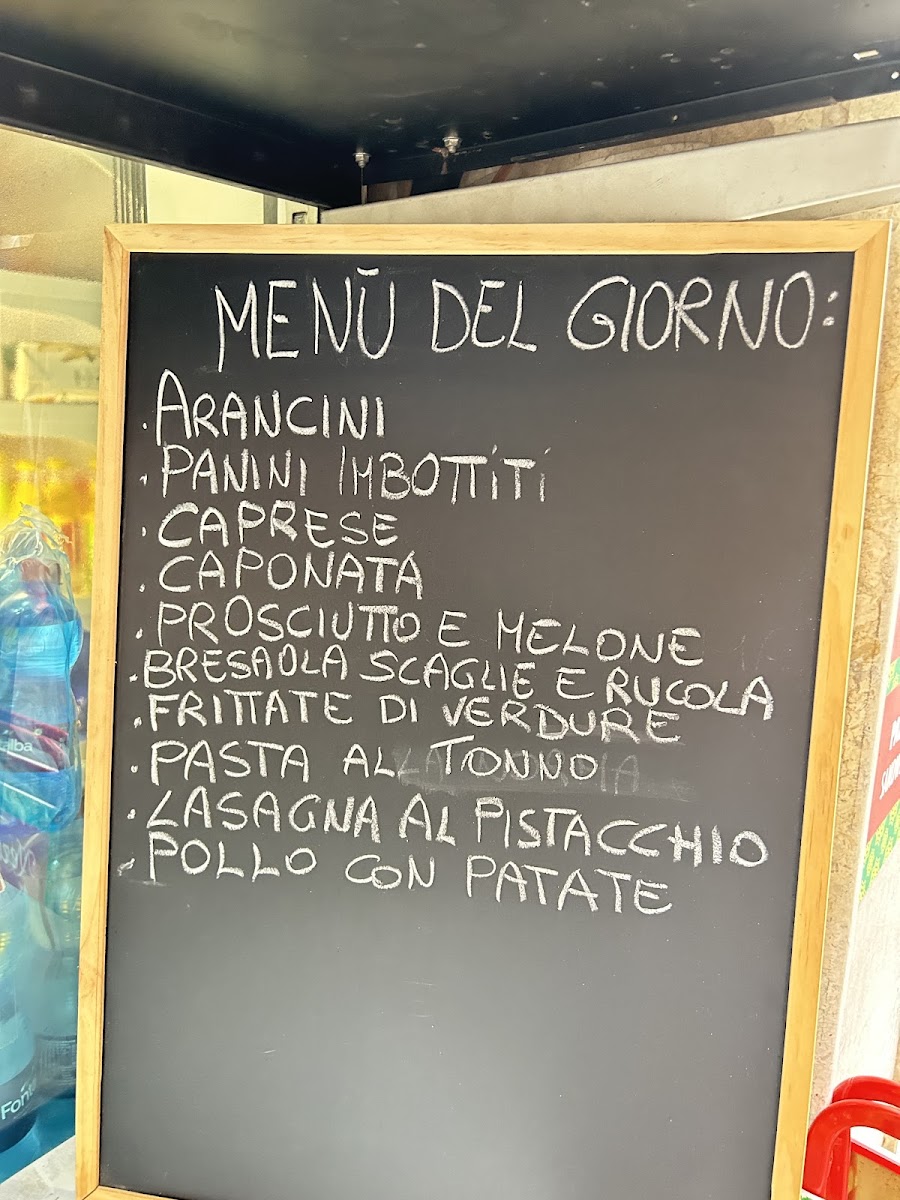 MENÙ DEL GIORNO:
· ARANCINI
· PANINI IMBOTTITI
· CAPRESE
· CAPONATA
· PROSCIUTTO E MELONE
· BRESAOLA SCAGLIE E RUCOLA
· FRITTATE DI VERDURE
· PASTA AL TONNO
· LASAGNA AL PISTACCHIO
- POLLO CON PATATE